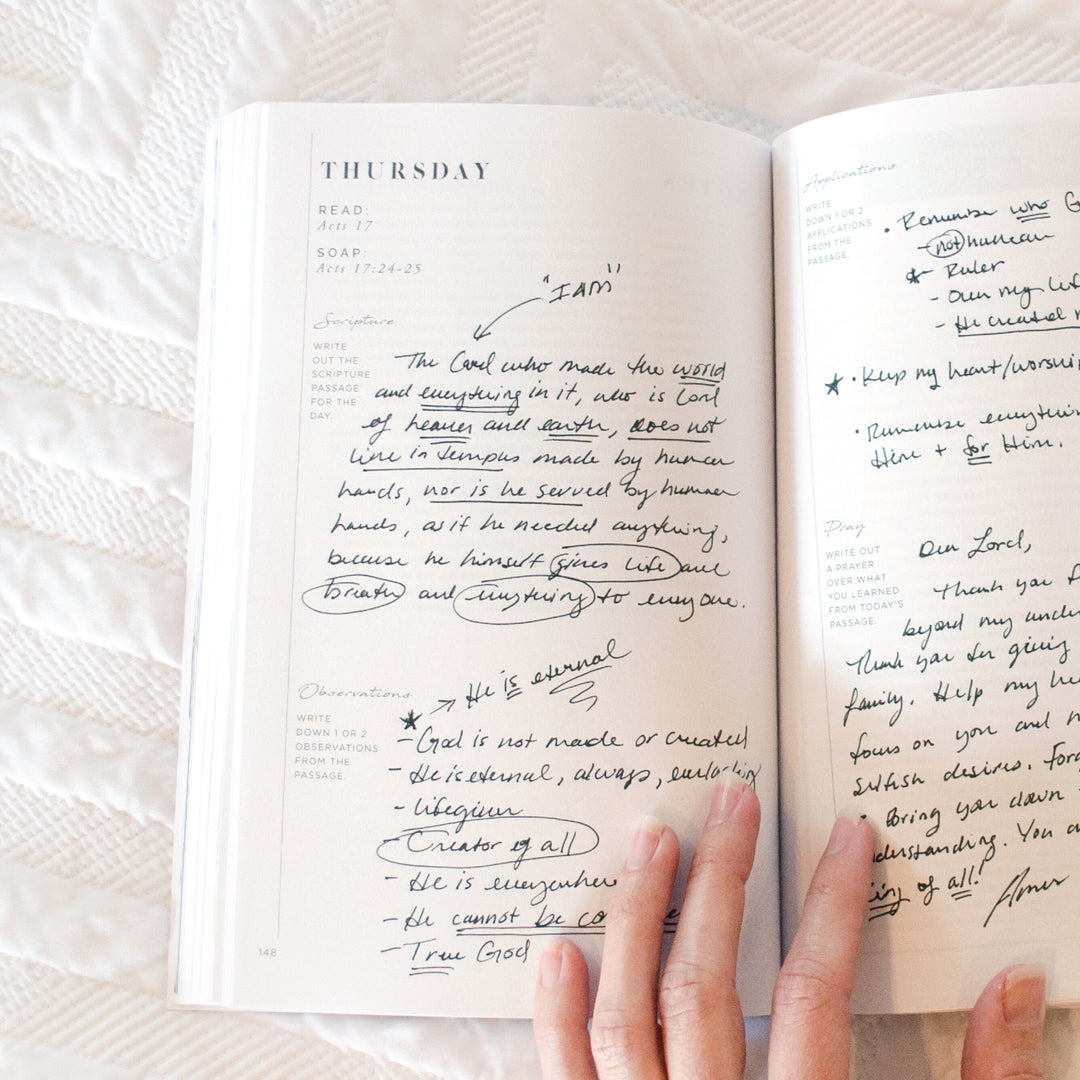 THURSDAY
READ:
Acts 17
SOAP:
Acts 17:24-25
"IAM"
Scripture
WRITE
OUT THE
SCRIPTURE
PASSAGE
FOR THE
DAY.
The God who made the world
and everything in it, who is Lord
of heaven and earth, does not
live in temples made by human
hands, nor is he served by human
hands, as if he needed anything,
because he himself gives life and
breath and everything to everyone.
Observations
WRITE
DOWN 1 OR 2
OBSERVATIONS
FROM THE
PASSAGE.
He is eternal
- God is not made or created
- He is eternal, always, everlasting
- Lifegiver
- Creator of all
- He is everywhere
- He cannot be
- True God
148
Applications
WRITE
DOWN 1 OR 2
APPLICATIONS
FROM THE
PASSAGE.
• Remember who
- not human
- Ruler
- Over my
- He created
• Keep my heart/worship
• Remember everything
Him + for Him.
Pray
WRITE OUT
A PRAYER
OVER WHAT
YOU LEARNED
FROM TODAY'S
PASSAGE.
Dear Lord,
Thank you
beyond my
Thank you for giving
family. Help my
focus on you and
selfish desires.
Bring you down
You
of all!
Amen